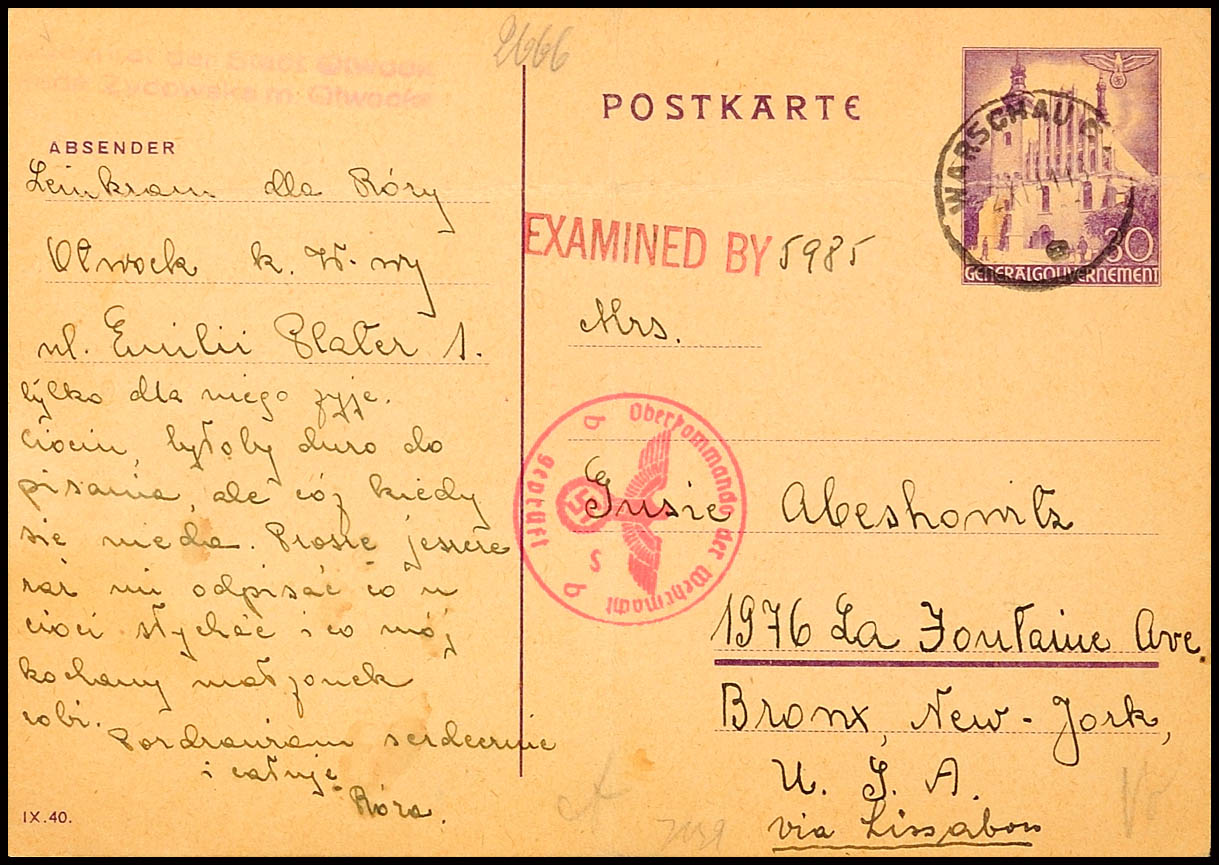 2666
der Stadt Otwock
Żydowska m. Otwocka
POSTKARTE
ABSENDER
Leinkram dla Róży
Otwock k. W-wy
ul. Emilii Plater 1.
tylko dla niego żyję.
Ciociu, byłoby dużo do
pisania, ale cóż kiedy
się nieda. Proszę jeszcze
raz mi odpisać co u
cioci słychać i co mój
kochany małżonek
robi.
Pozdrawiam serdecznie
i całuję
Róża.
IX.40.
EXAMINED BY 5985
WARSCHAU C
30
GENERALGOUVERNEMENT
Mrs.
Oberkommando der Wehrmacht
geprüft
b
b
Gusie Abeshowitz
1976 La Fontaine Ave.
Bronx, New-Jork,
U. S. A.
via Lissabon